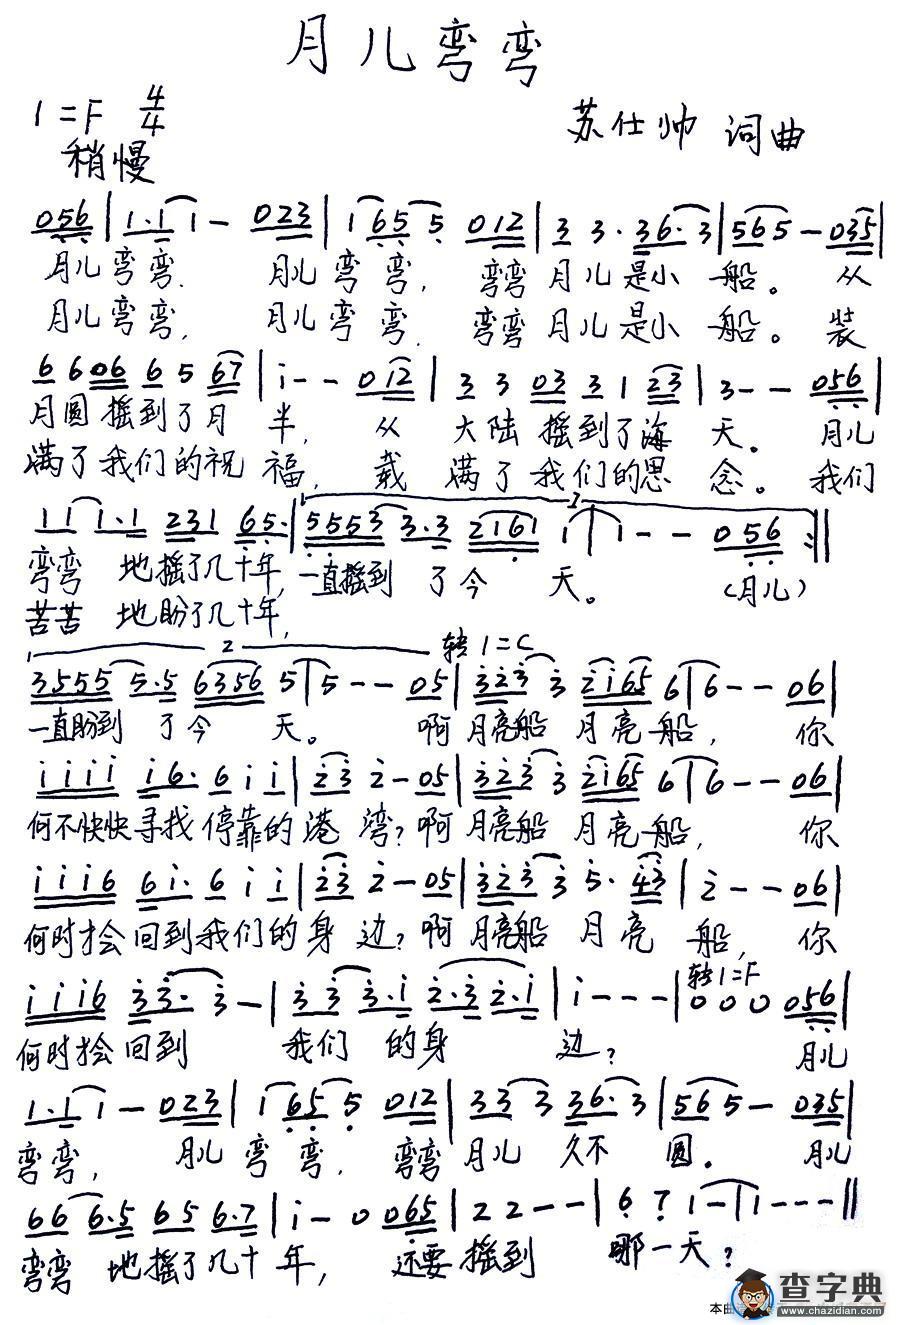 月儿弯弯
1=F 4/4
苏仕帅 词曲
稍慢
056|1·1 1- 023|1 65 5 012|3 3·36·3|565-035|
月儿弯弯. 月儿弯弯, 弯弯月儿是小船。从
月儿弯弯, 月儿弯弯. 弯弯月儿是小船。装
6 606 6 5 67|i--012|3 3 03 3 1 23|3--056|
月圆摇到了月半, 从大陆摇到了海天。月儿
满了我们的祝福, 载满了我们的思念。我们
11 1·1 231 65·|5553 3·3 2161 1|1--056:||
弯弯 地摇了几十年,一直摇到了今天。(月儿)
苦苦 地盼了几十年,
2 转1=C
3555 5·5 6356 5|5--05|323 3 2i65 6|6--06|
一直盼到了今天。 啊月亮船月亮船, 你
iiii i6·6ii|23 2-05|323 3 2i65 6|6--06|
何不快快寻找停靠的港湾?啊月亮船月亮船, 你
iii6 6i·6ii|23 2-05|323 3 5·43|2--06|
何时才会回到我们的身边?啊月亮船月亮船, 你
转1=F
iii6 33·3-|33 3·i 2·3 2·i|i---|000 056|
何时才会回到 我们的身边? 月儿
1·1 1-023|1 65 5 012|33 3 36·3|565-035|
弯弯, 月儿弯弯, 弯弯月儿久不圆。月儿
66 6·5 65 6·7|i-0 065|22--|6 7 1-|1---||
弯弯 地摇了几十年, 还要摇到那一天?
本曲
查字典
www.chazidian.com